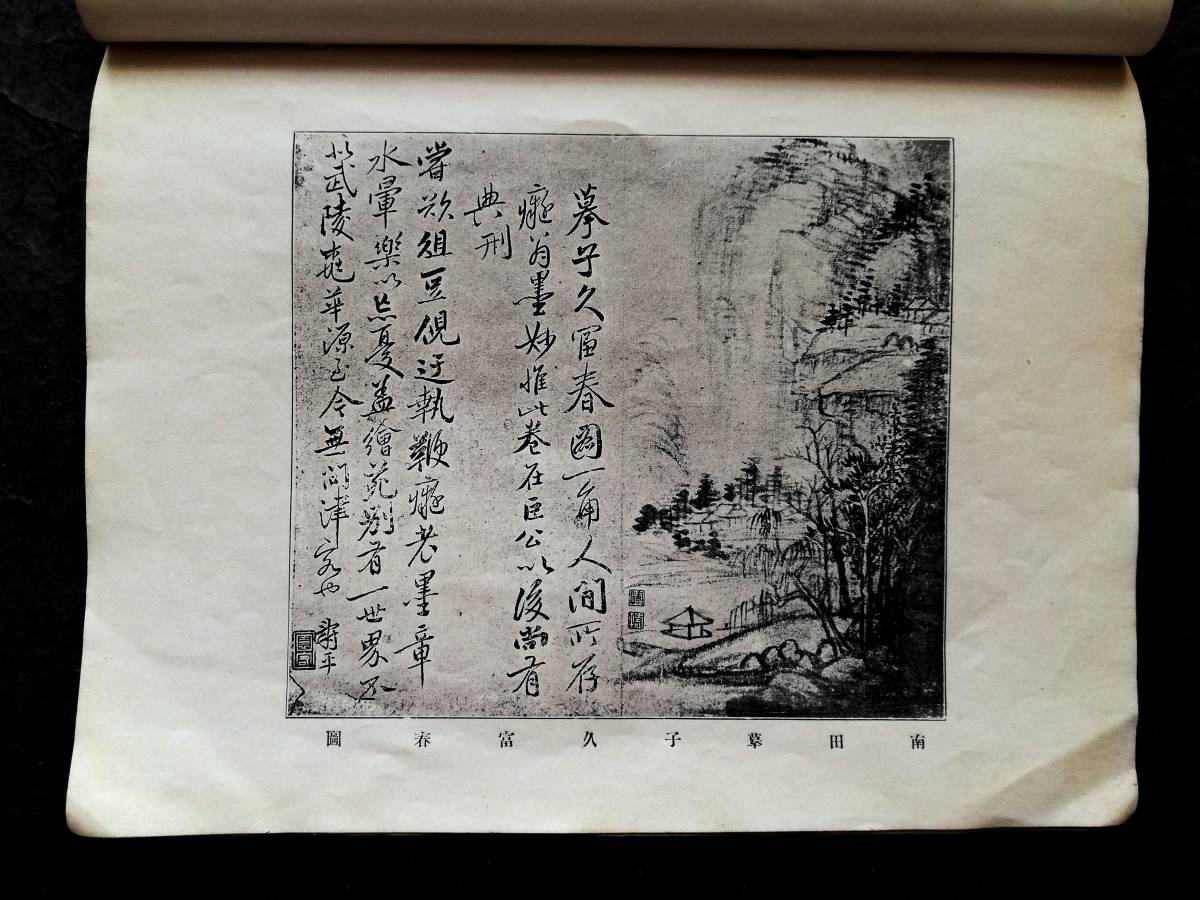 摹子久富春圖一角人間所存
癡翁墨妙惟此卷在巨公以後尚有
典刑
嘗欲俎豆倪迂執鞭癡老墨章
水暈樂以忘憂蓋繪苑別有一世界不
比武陵桃華源至今無問津客也 壽平
南田摹子久富春圖